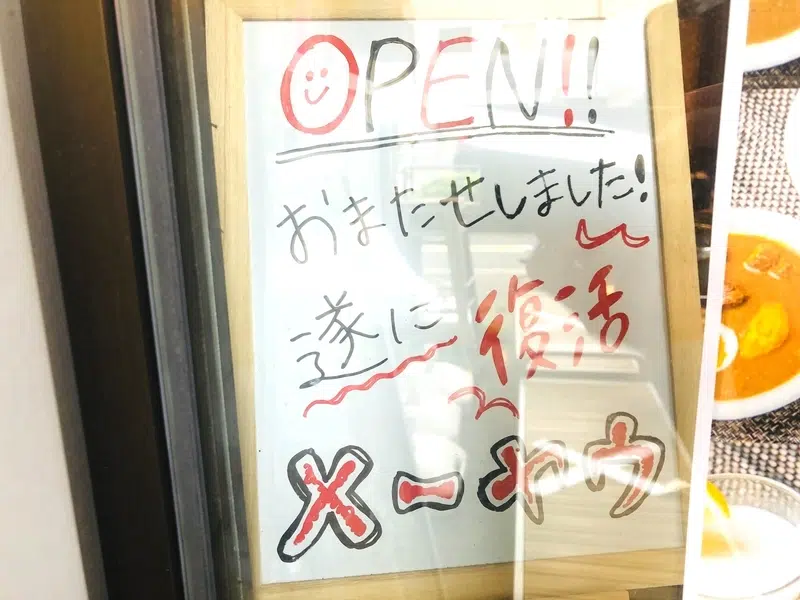 OPEN!!
おまたせしました!
遂に復活
メーヤウ